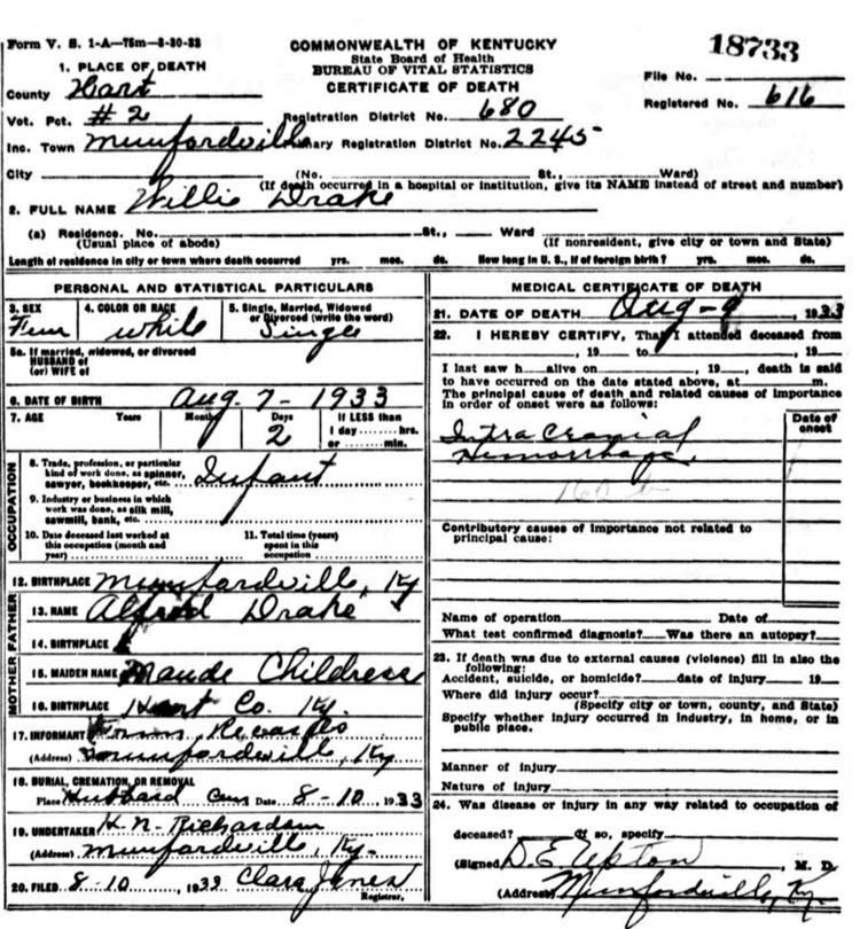 Form V. S. 1-A—75m—8-30-33
COMMONWEALTH OF KENTUCKY
State Board of Health
BUREAU OF VITAL STATISTICS
CERTIFICATE OF DEATH
18733
File No.
Registered No. 616
1. PLACE OF DEATH
County Hart
Vot. Pct. #2
Registration District No. 680
Inc. Town Munfordville
Primary Registration District No. 2245
City (No. St., Ward)
(If death occurred in a hospital or institution, give its NAME instead of street and number)
2. FULL NAME Willie Drake
(a) Residence. No. St., Ward
(Usual place of abode) (If nonresident, give city or town and State)
Length of residence in city or town where death occurred yrs. mos. ds. How long in U. S., if of foreign birth? yrs. mos. ds.
PERSONAL AND STATISTICAL PARTICULARS
3. SEX 4. COLOR OR RACE 5. Single, Married, Widowed
or Divorced (write the word)
Fem white Single
5a. If married, widowed, or divorced
HUSBAND of
(or) WIFE of
6. DATE OF BIRTH Aug. 7- 1933
7. AGE Years Months Days If LESS than
2 1 day hrs.
or min.
OCCUPATION
8. Trade, profession, or particular
kind of work done, as spinner,
sawyer, bookkeeper, etc. Infant
9. Industry or business in which
work was done, as silk mill,
sawmill, bank, etc.
10. Date deceased last worked at
this occupation (month and
year)
11. Total time (years)
spent in this
occupation
12. BIRTHPLACE Munfordville, Ky
FATHER
13. NAME Alfred Drake
14. BIRTHPLACE
MOTHER
15. MAIDEN NAME Maude Childress
16. BIRTHPLACE Hart Co. Ky.
17. INFORMANT
(Address) Munfordville, Ky
18. BURIAL, CREMATION, OR REMOVAL
Place Hubbard Cem Date 8-10, 1933
19. UNDERTAKER H. N. Richardson
(Address) Munfordville, Ky.
20. FILED 8-10, 1933 Clara Jones
Registrar.
MEDICAL CERTIFICATE OF DEATH
21. DATE OF DEATH Aug-9, 1933
22. I HEREBY CERTIFY, That I attended deceased from
, 19 to , 19
I last saw h alive on , 19 , death is said
to have occurred on the date stated above, at m.
The principal cause of death and related causes of importance
in order of onset were as follows:
Date of
onset
Intra Cranial
Hemorrhage.
Contributory causes of importance not related to
principal cause:
Name of operation Date of
What test confirmed diagnosis? Was there an autopsy?
23. If death was due to external causes (violence) fill in also the
following:
Accident, suicide, or homicide? date of injury 19
Where did injury occur?
(Specify city or town, county, and State)
Specify whether injury occurred in industry, in home, or in
public place.
Manner of injury
Nature of injury
24. Was disease or injury in any way related to occupation of
deceased? If so, specify
(Signed) D. E. Upton, M. D.
(Address) Munfordville, Ky.